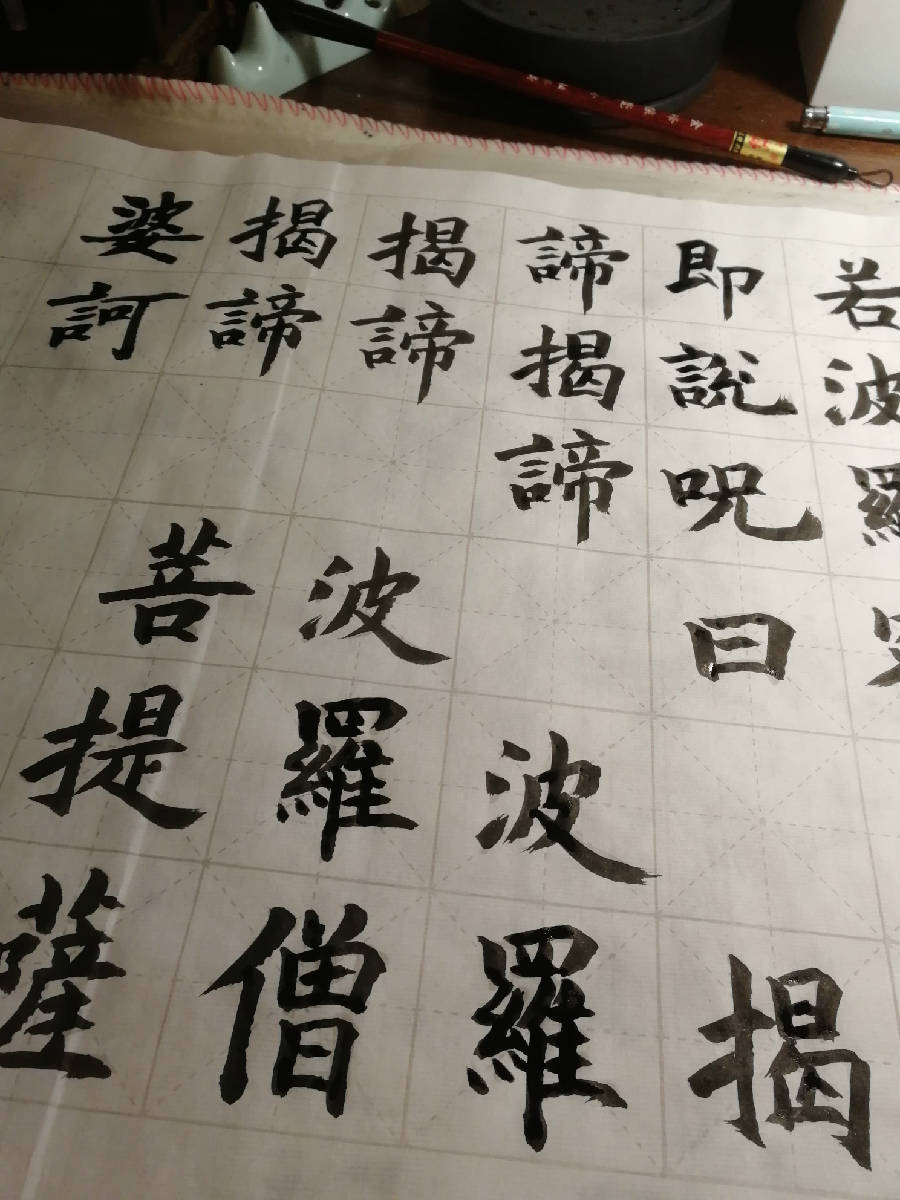 若波羅
即說呪曰 揭
諦揭諦 波羅
揭諦 波羅僧
揭諦 菩提薩
婆訶